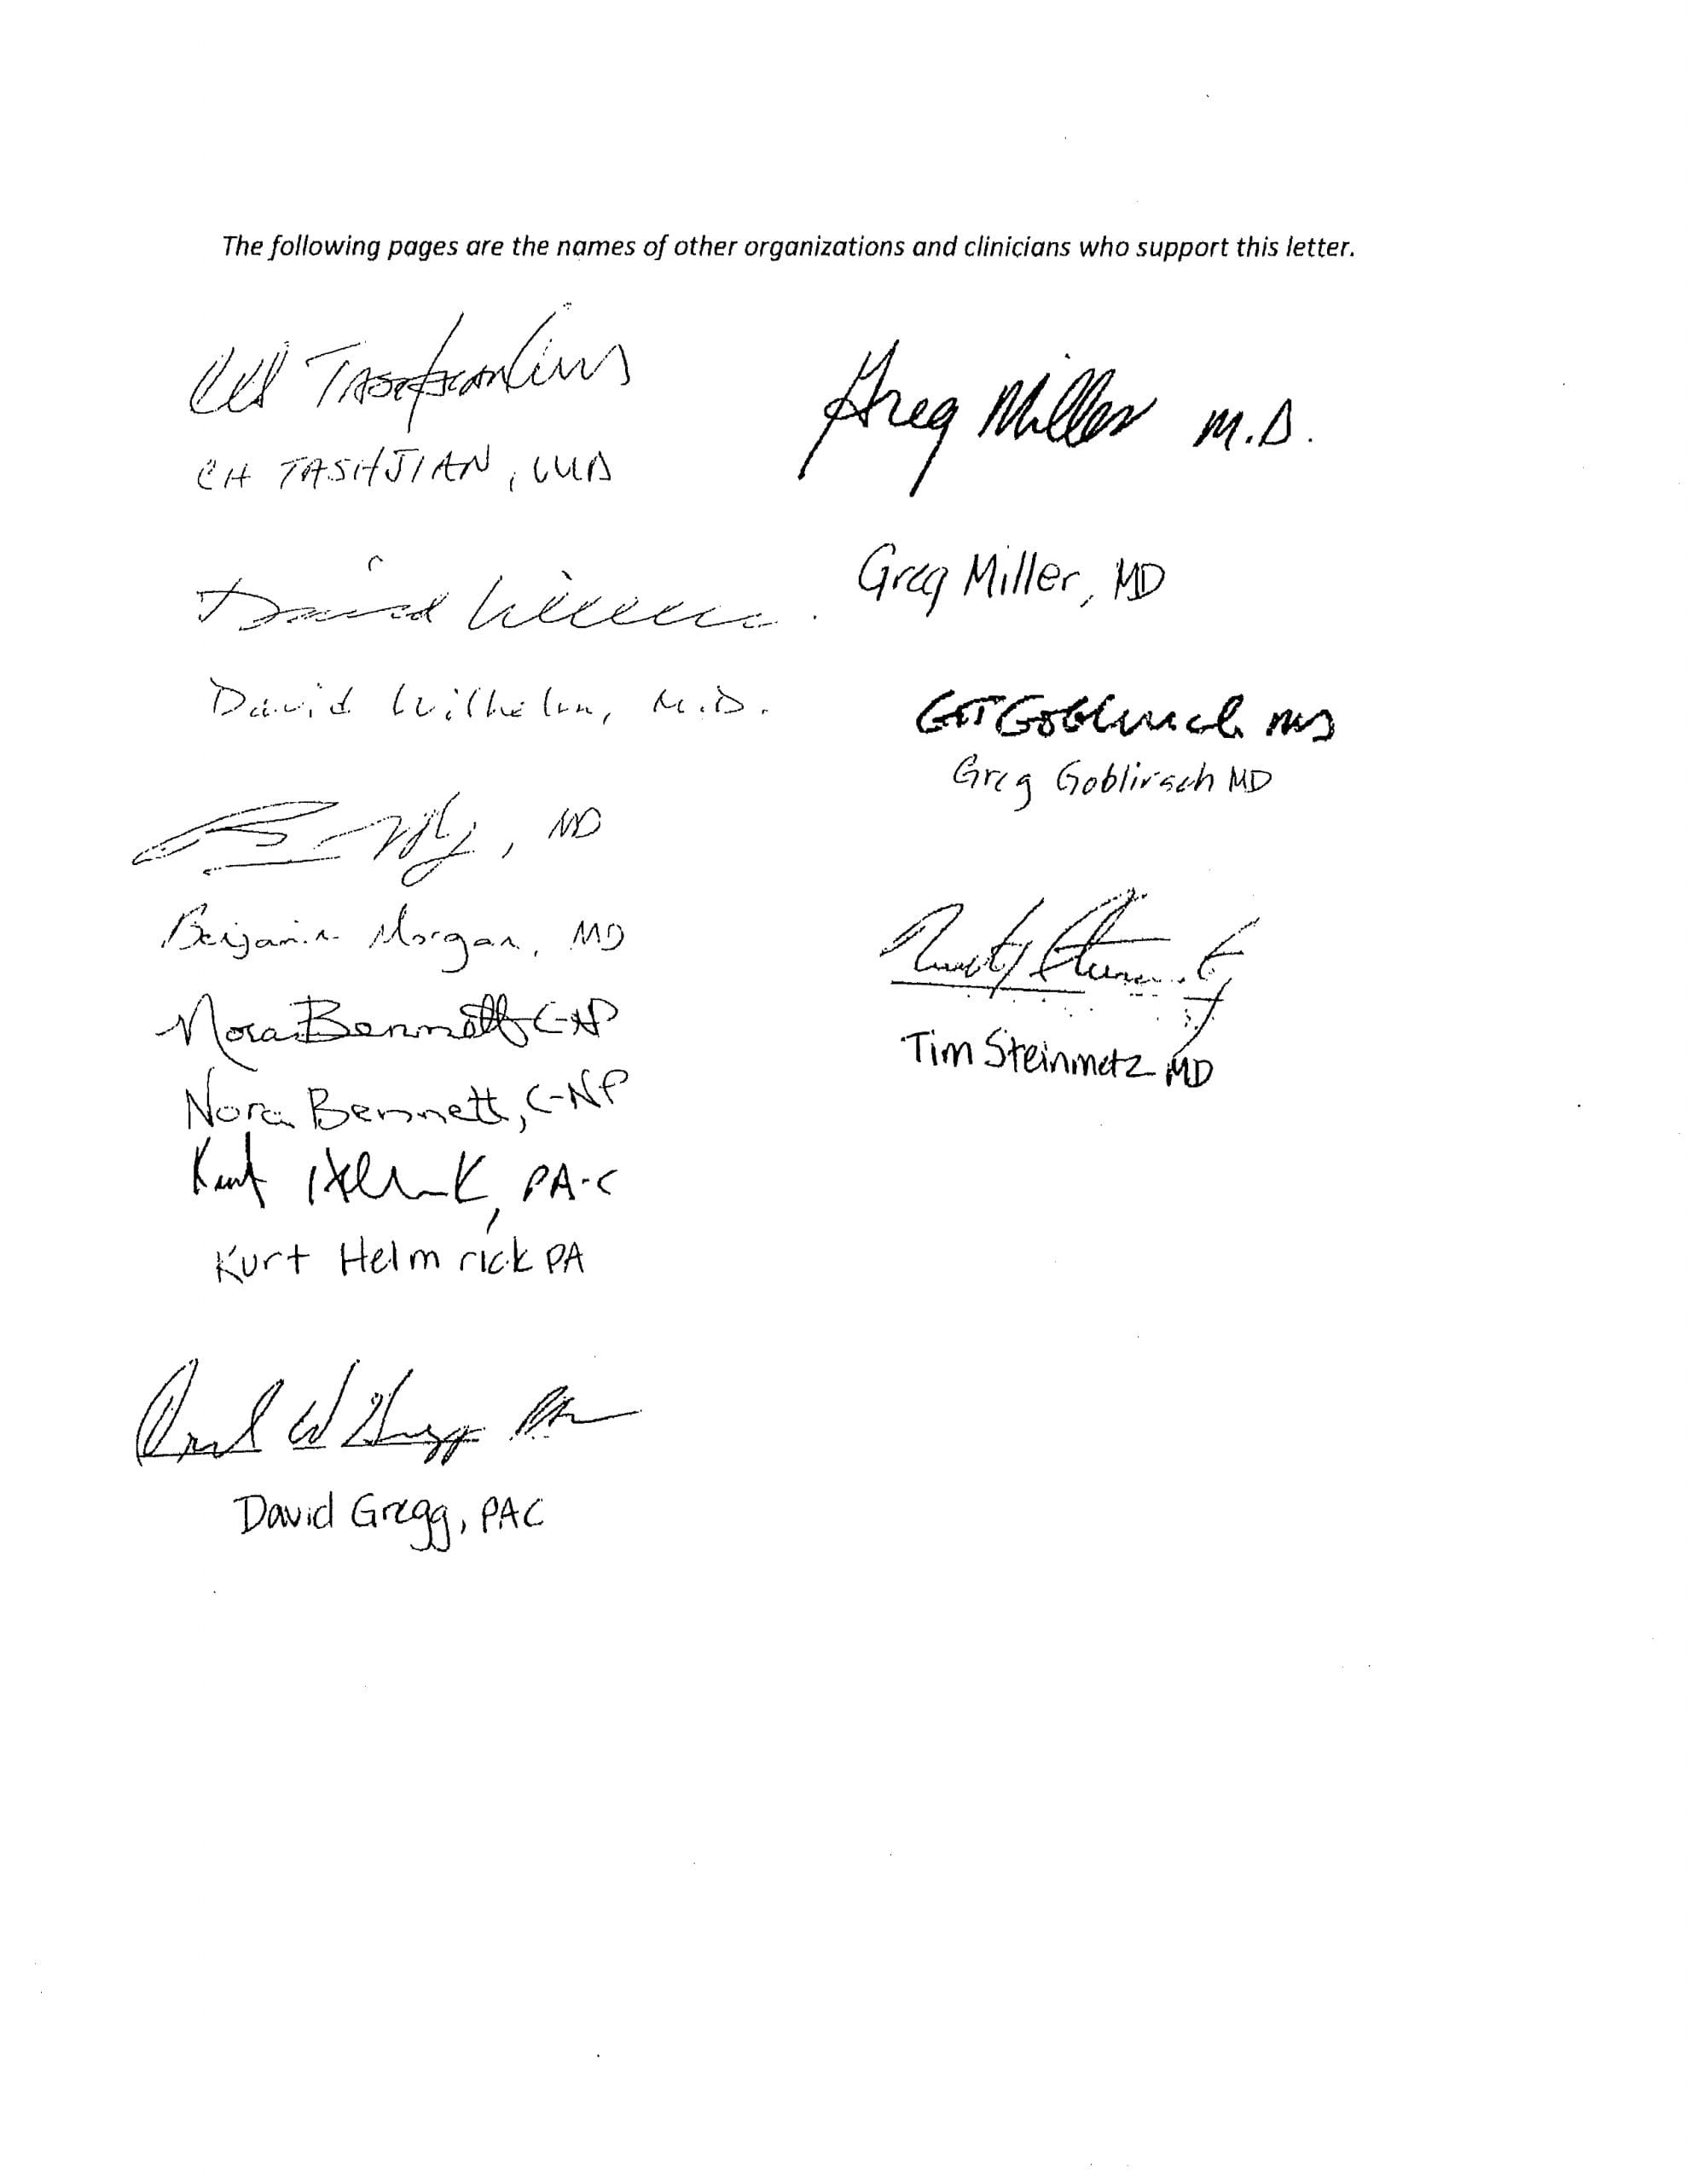 The following pages are the names of other organizations and clinicians who support this letter.
CH TASHJIAN, MD
David Wilhelm, M.D.
, MD
Benjamin Morgan, MD
Nora Bennett C-NP
Nora Bennett, C-NP
Kurt PA-C
Kurt Helmrick PA
David W Gregg PA
David Gregg, PAC
Greg Miller M.D.
Greg Miller, MD
GT Goblirsch MD
Greg Goblirsch MD
Tim Steinmetz MD